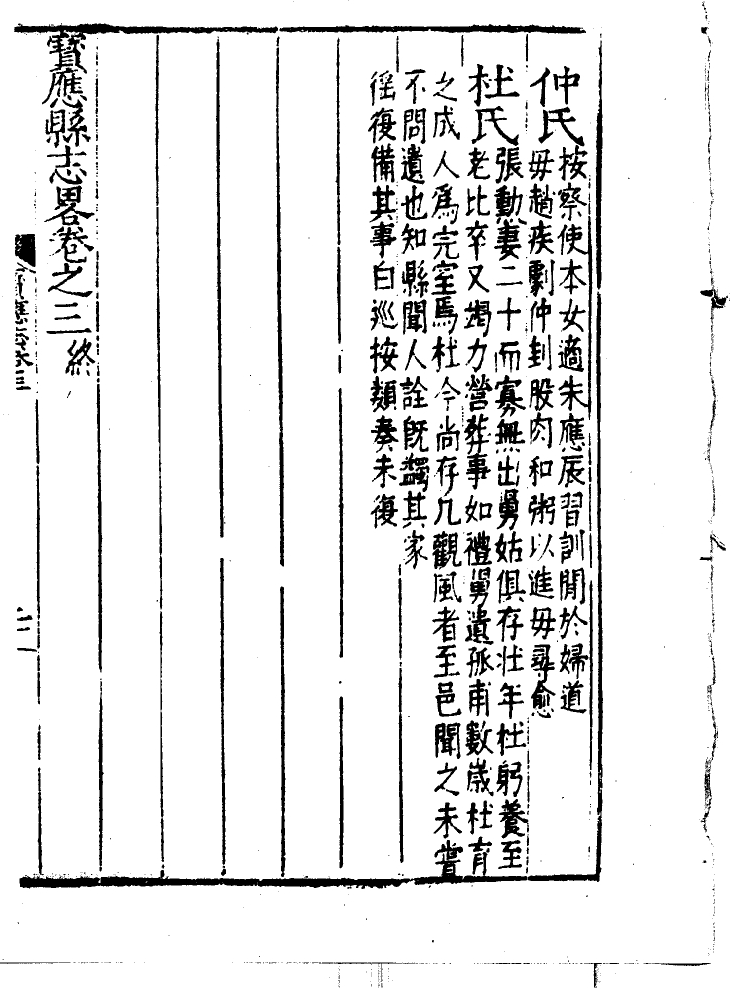 仲氏
按察使本女適朱應辰習訓閒於婦道
毋趙疾劇仲刲股肉和粥以進毋尋愈
杜氏
張勲妻二十而寡無出舅姑俱存壯年杜躬養至
老比卒又竭力營葬事如禮舅遺孤甫數歳杜育
之成人爲完室焉杜今尚存凡觀風者至邑聞之未嘗
不問遺也知縣聞人詮既蠲其家
徭復備其事白巡按類奏未復
寳應縣志畧卷之三終